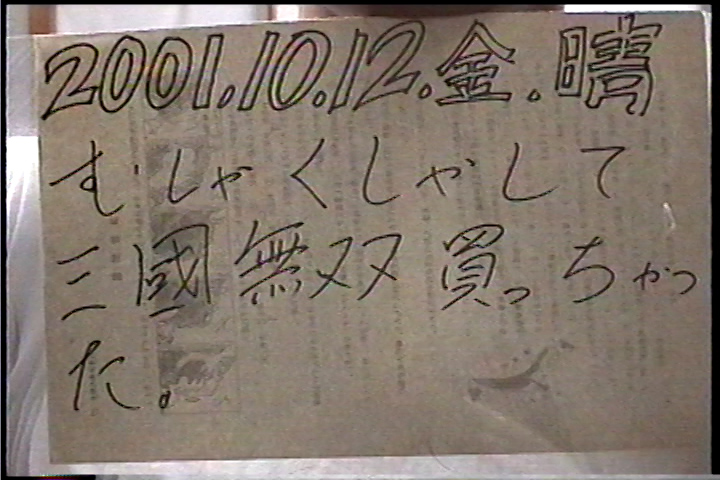 2001.10.12.金.晴
むしゃくしゃして
三國無双買っちゃっ
た。